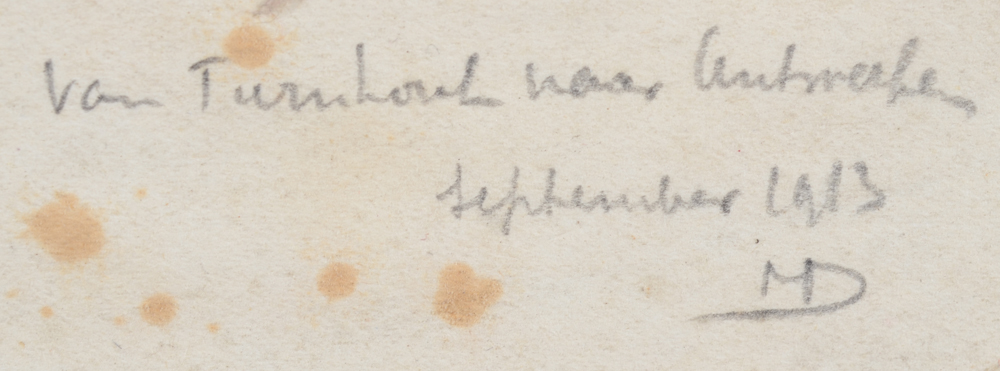 Van Turnhout naar Antwerpen
september 1913
MD